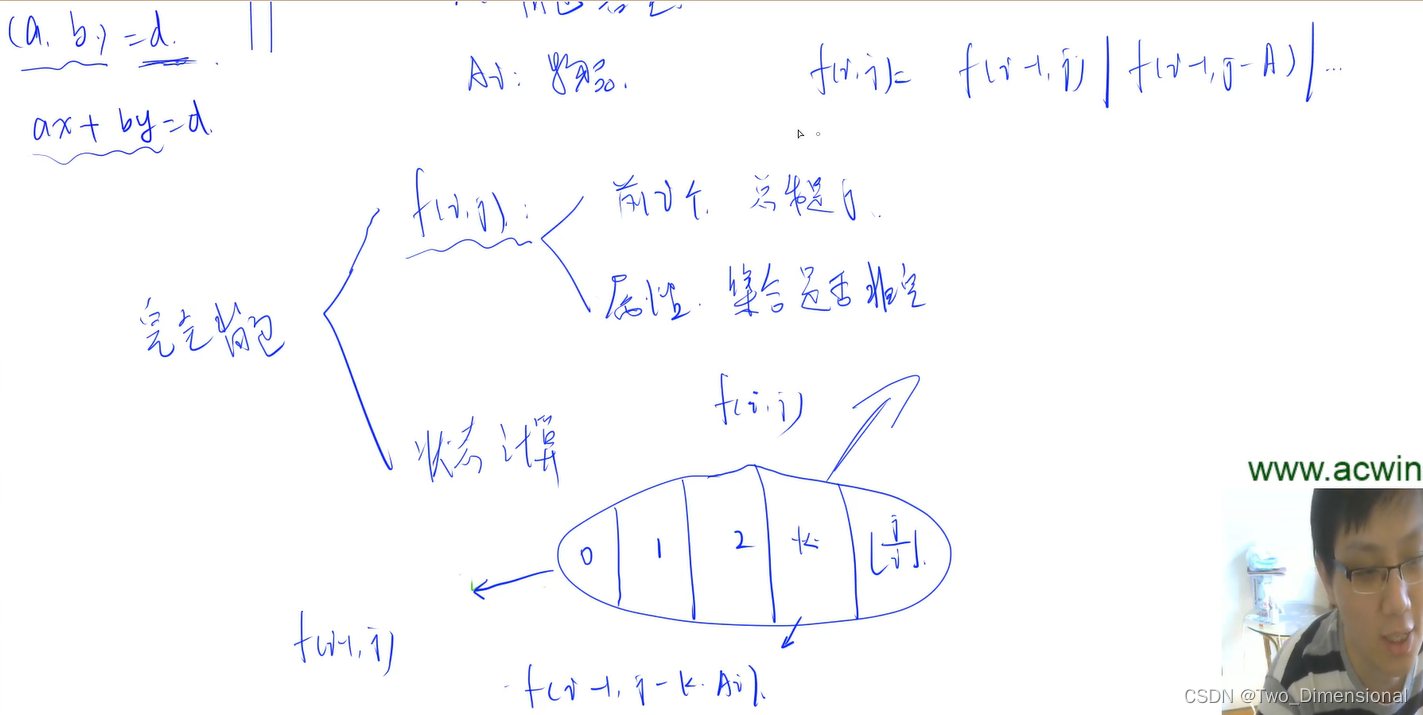 (a, b) = d.
Ai: 物品.
f(i, j) = f(i-1, j) | f(i-1, j-A) | ...
ax + by = d.
f(i, j):
前i个 总和是j.
属性. 集合是否非空
完全背包
f(i, j)
状态计算
www.acwin
0 1 2 k ⌊j/i⌋.
f(i-1, j)
f(i-1, j-k·Ai).
CSDN @Two_Dimensional